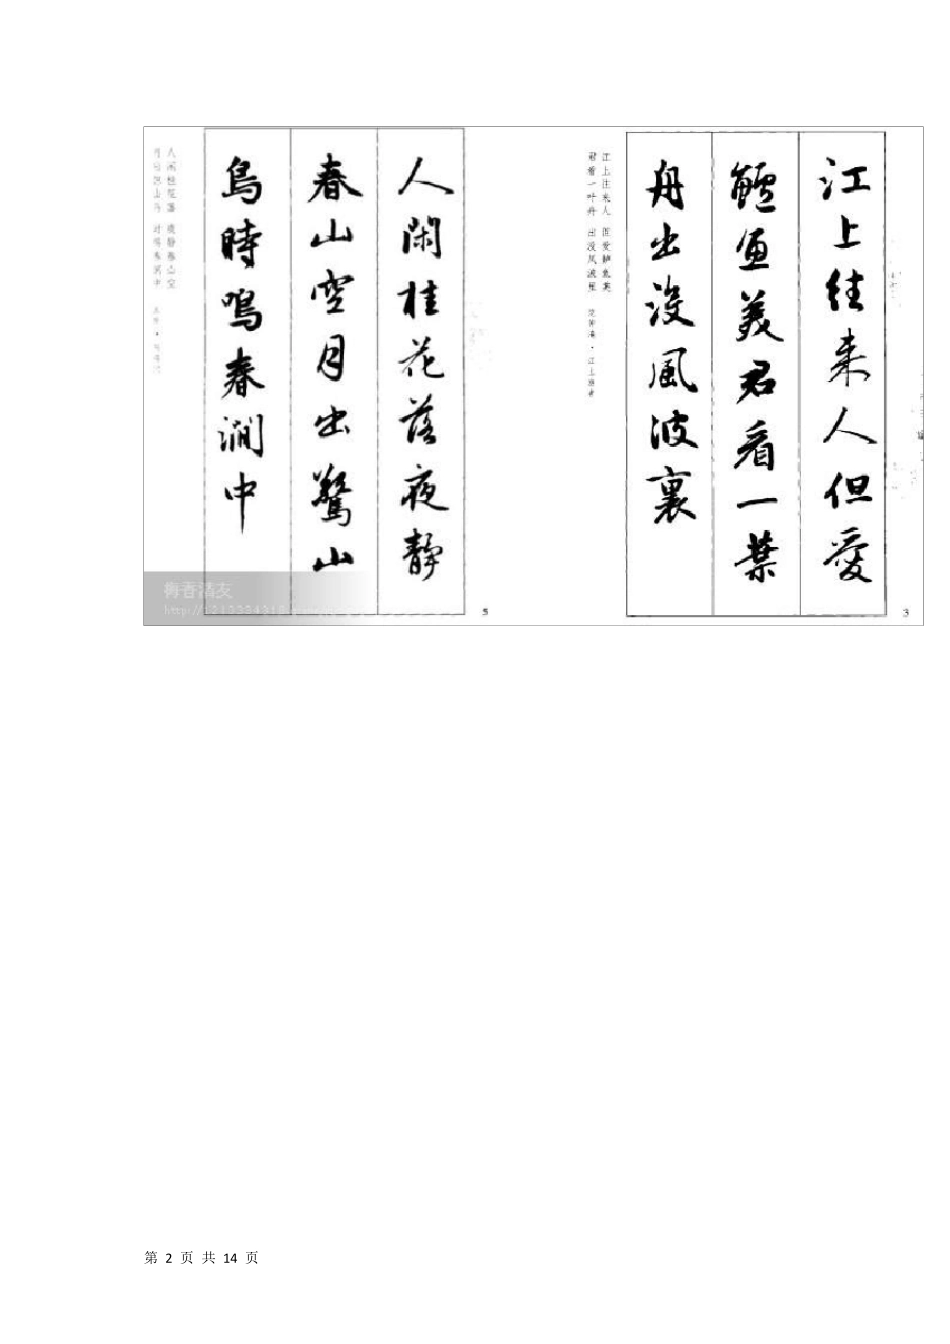 江上往来人但愛
鱸魚美君看一葉
舟出没風波裏
江上往来人 但爱鲈鱼美
君看一叶舟 出没风波里 范仲淹·江上渔者
3
人閑桂花落夜静
春山空月出驚山
鳥時鳴春澗中
人闲桂花落 夜静春山空
月出惊山鸟 时鸣春涧中
5
梅香清友
第 2 页 共 14 页